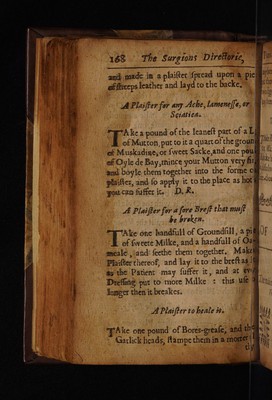 168 The Surgions Directorie,
and made in a plaister spread upon a pie
of sheeps leather and layd to the backe.
A Plaister for any Ache, lamenesse, or
Sciatica.
TAke a pound of the leanest part of a L
of Mutton, put to it a quart of the groun
of Muskadine, or sweet Sacke, and one pou
of Oyle de Bay, mince your Mutton very fi
and boyle them together into the forme o
plaister, and so apply it to the place as hot
you can suffer it. D. R.
A Plaister for a sore Brest that must
be broken.
TAke one handfull of Groundsill, a pi
of sweete Milke, and a handfull of Oa
meale, and seethe them together. Make
Plaister thereof, and lay it to the brest as
as the Patient may suffer it, and at ev
Dressing put to more Milke : this use
longer then it breakes.
A Plaister to heale it.
TAke one pound of Bores-grease, and
Garlick heads, stampe them in a morter